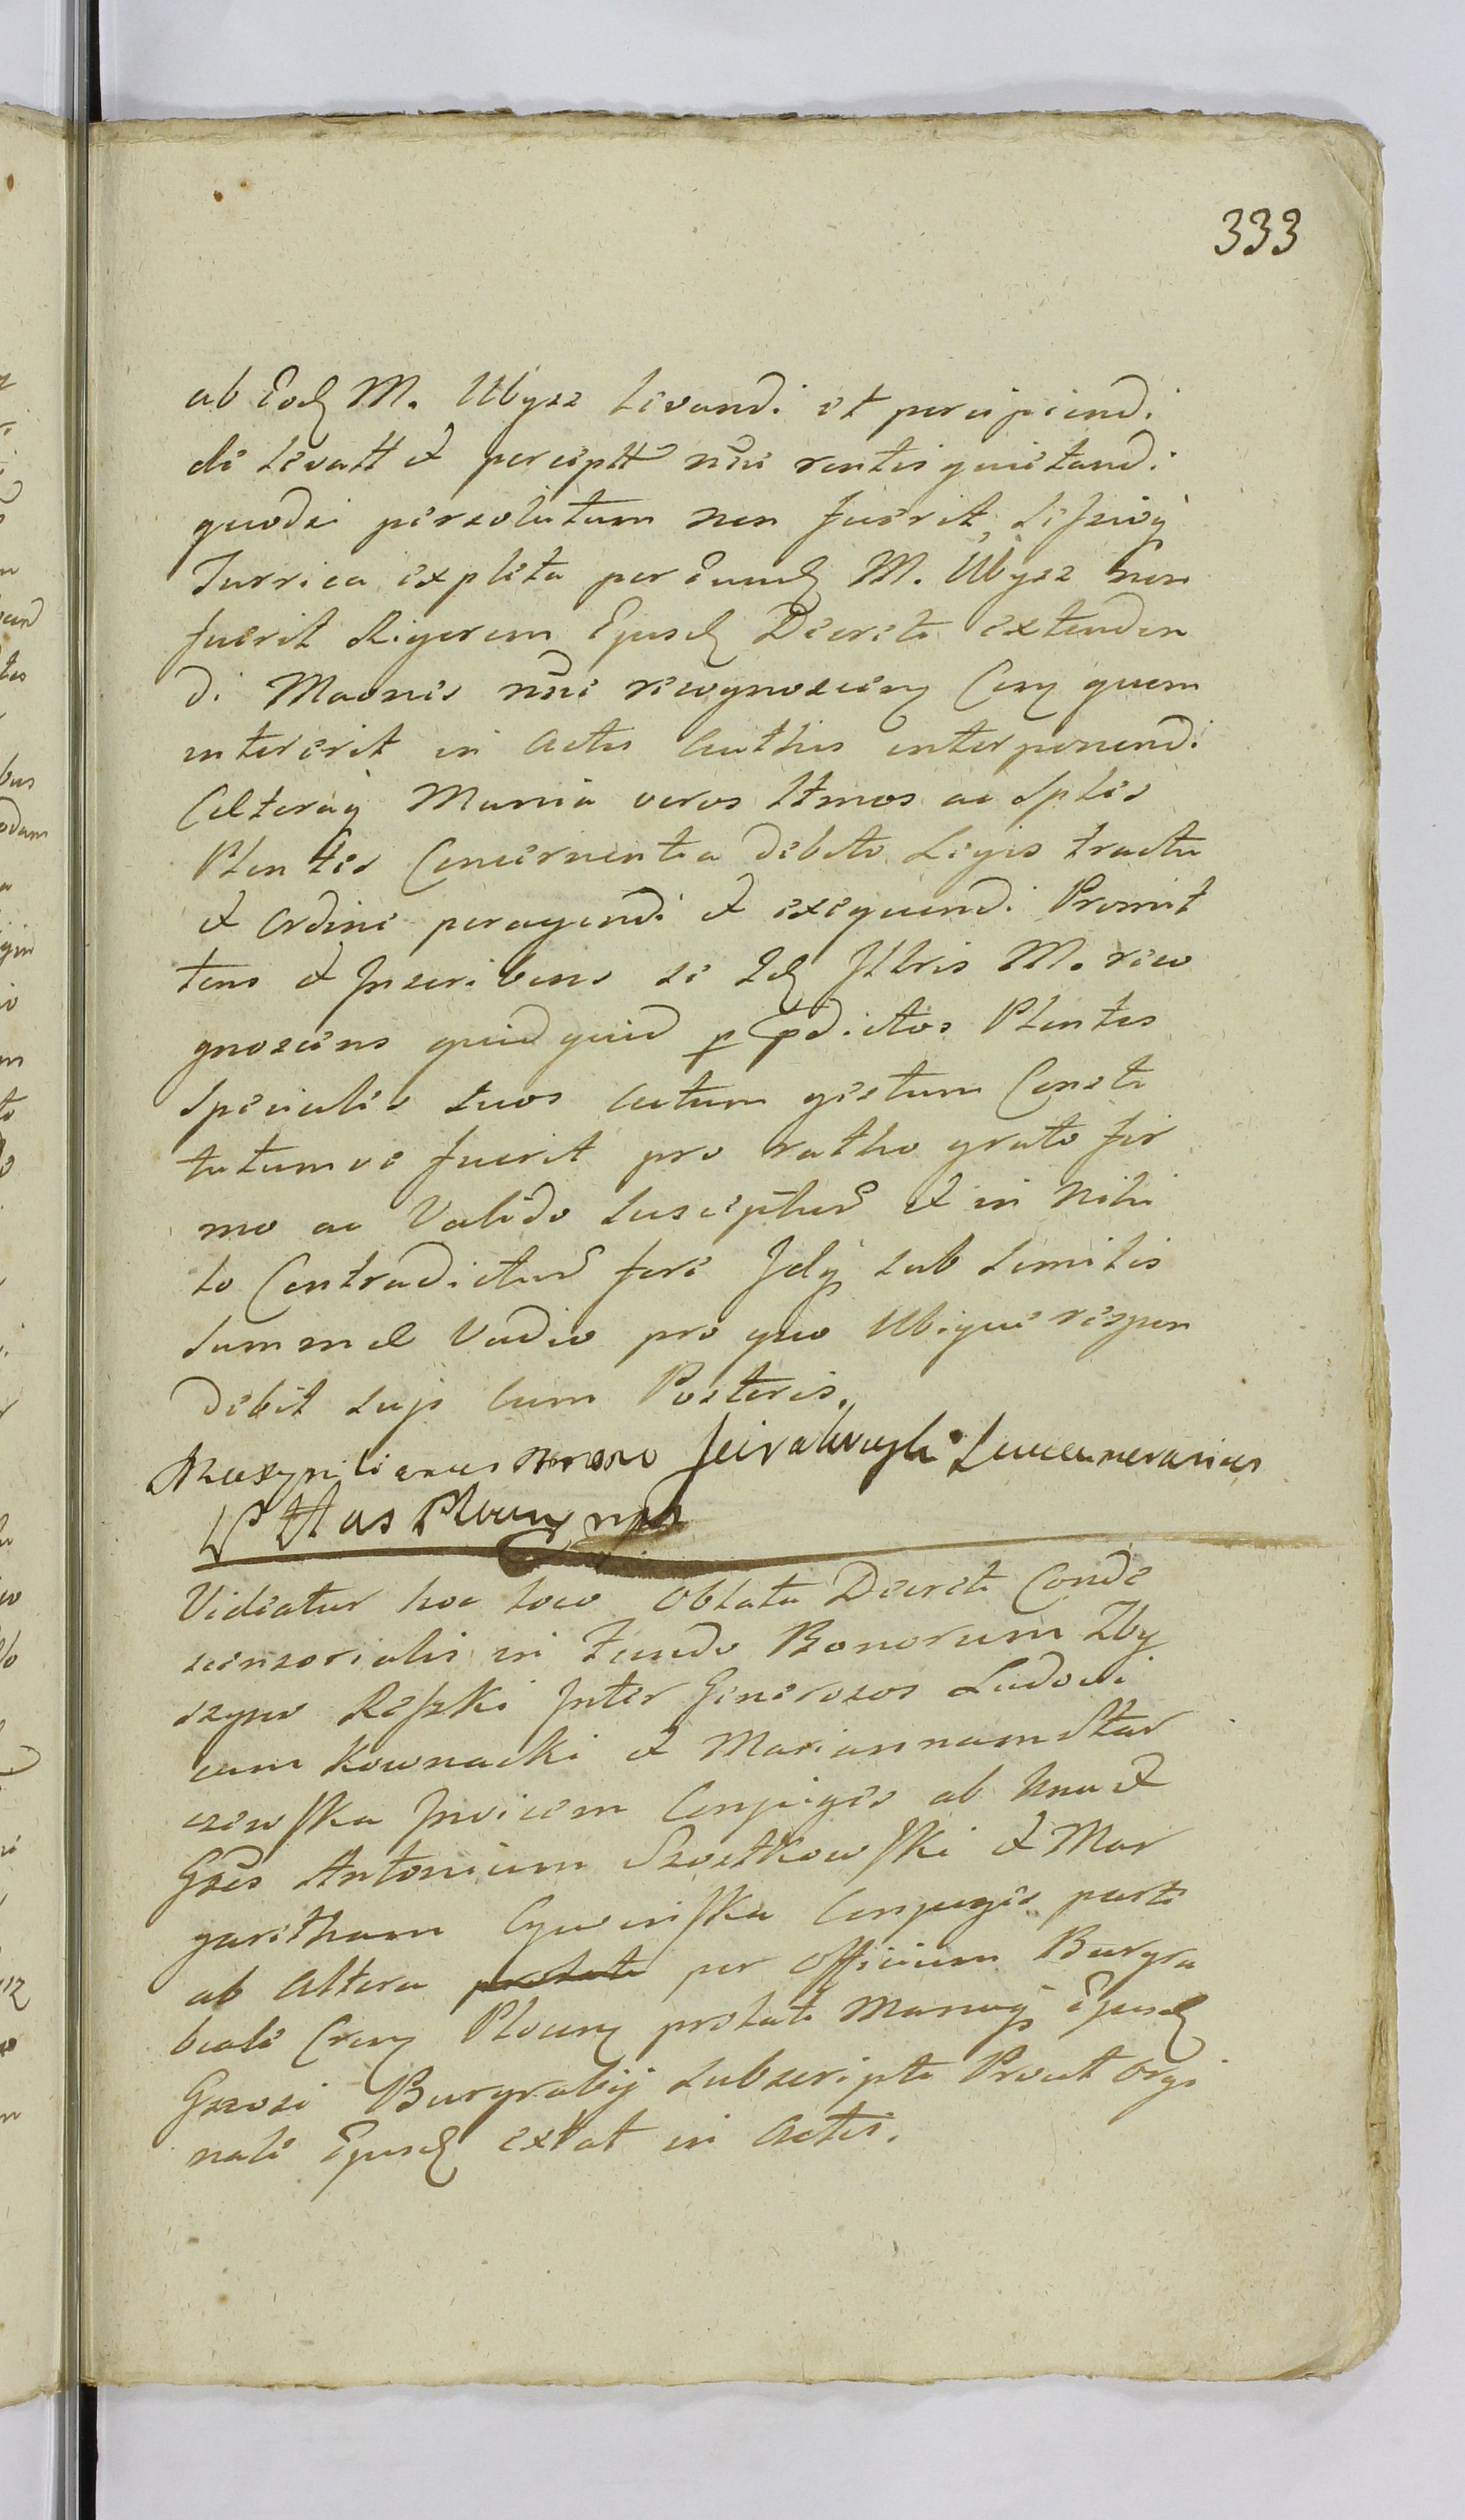 333
ab Eod M. Ubysz Levandi et percipiendi
de Levatt et perceptt nne rentis quietandi
quodsi persolutum non fuerit, Seszioq
Turrica expleta per Eund M. Ubysz non
fuerit Rigorem Ejusd Decreti extenden
di Maonis nne recognoscien Cony quem
intererit in Actis Authis interponendi
Ceteraq Munia veros Ltmos ac Splis
Plentes Concernentia debito Legis tractu
et Ordine peragendi et exequendi Promit
tens et Inscribens se Id Illris M. reco
gnoscens quidquid p pdictos Plentes
Speciales Suos Actum gestum Consti
tutumve fuerit pro ratho grato fir
mo ac Valido Suscepthur et in Nihi
lo Contradictur fore Idq sub Similis
Summæ Vadio pro quo Ubique respon
debit Sujs cum Posteris.
Maxymilianus Succamerarius
Videatur hoc loco Oblata Decreti Conde
scensorialis in Fundo Bonorum Zby
szyno Reszki Inter Generosos Ludovi
cum Kownacki et Mariannam Star
czewska Invicem Conjuges ab Una et
Gsos Antonium Szostkowski et Mar
garitham Cywinska Conjuges parte
ab Altera prolati per Officium Burgra
biale Cren Plocen prolati Manuq Ejusd
Gnrosi Burgrabij Subscripti Prout Orgi
nale Ejusd extat in Actis.